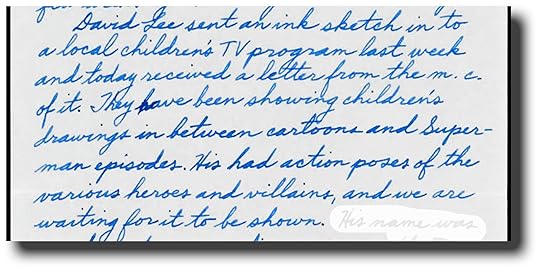 David Lee sent an ink sketch in to
a local children's TV program last week
and today received a letter from the m. c.
of it. They have been showing children's
drawings in between cartoons and Super-
man episodes. His had action poses of the
various heroes and villains, and we are
waiting for it to be shown. His name was